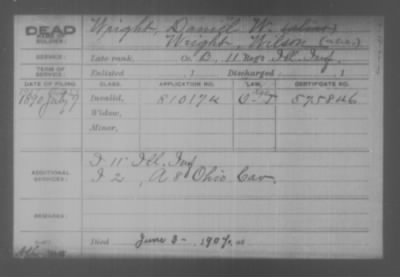 DEAD
NAME OF SOLDIER:
Wright, Daniel W. (alias)
Wright, Wilson (alias)
SERVICE: Late rank, Co. D, 11 Reg't Ill. Inf.
TERM OF SERVICE: Enlisted , 1 Discharged , 1
DATE OF FILING. CLASS. APPLICATION NO. LAW. CERTIFICATE NO.
1890 July 7 Invalid, 810174 575846
Widow,
Minor,
ADDITIONAL SERVICES:
I 11 Ill. Inf
I 2, A 8 Ohio Cav.
REMARKS:
Died June 3 - 1907, at